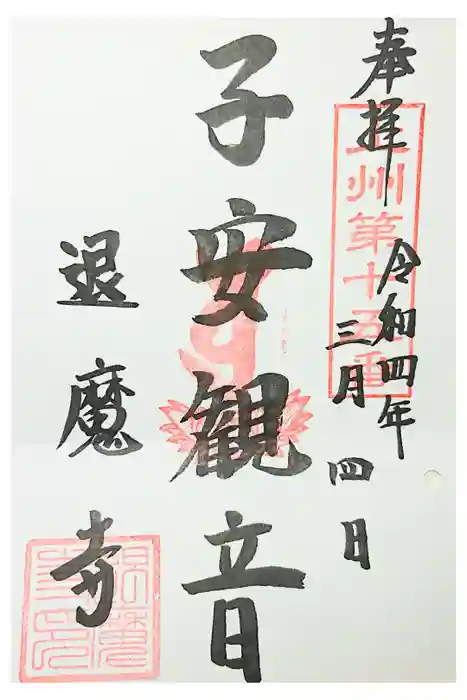 奉拝
州第十五番
令和四年
三月
四日
子安観音
退魔寺